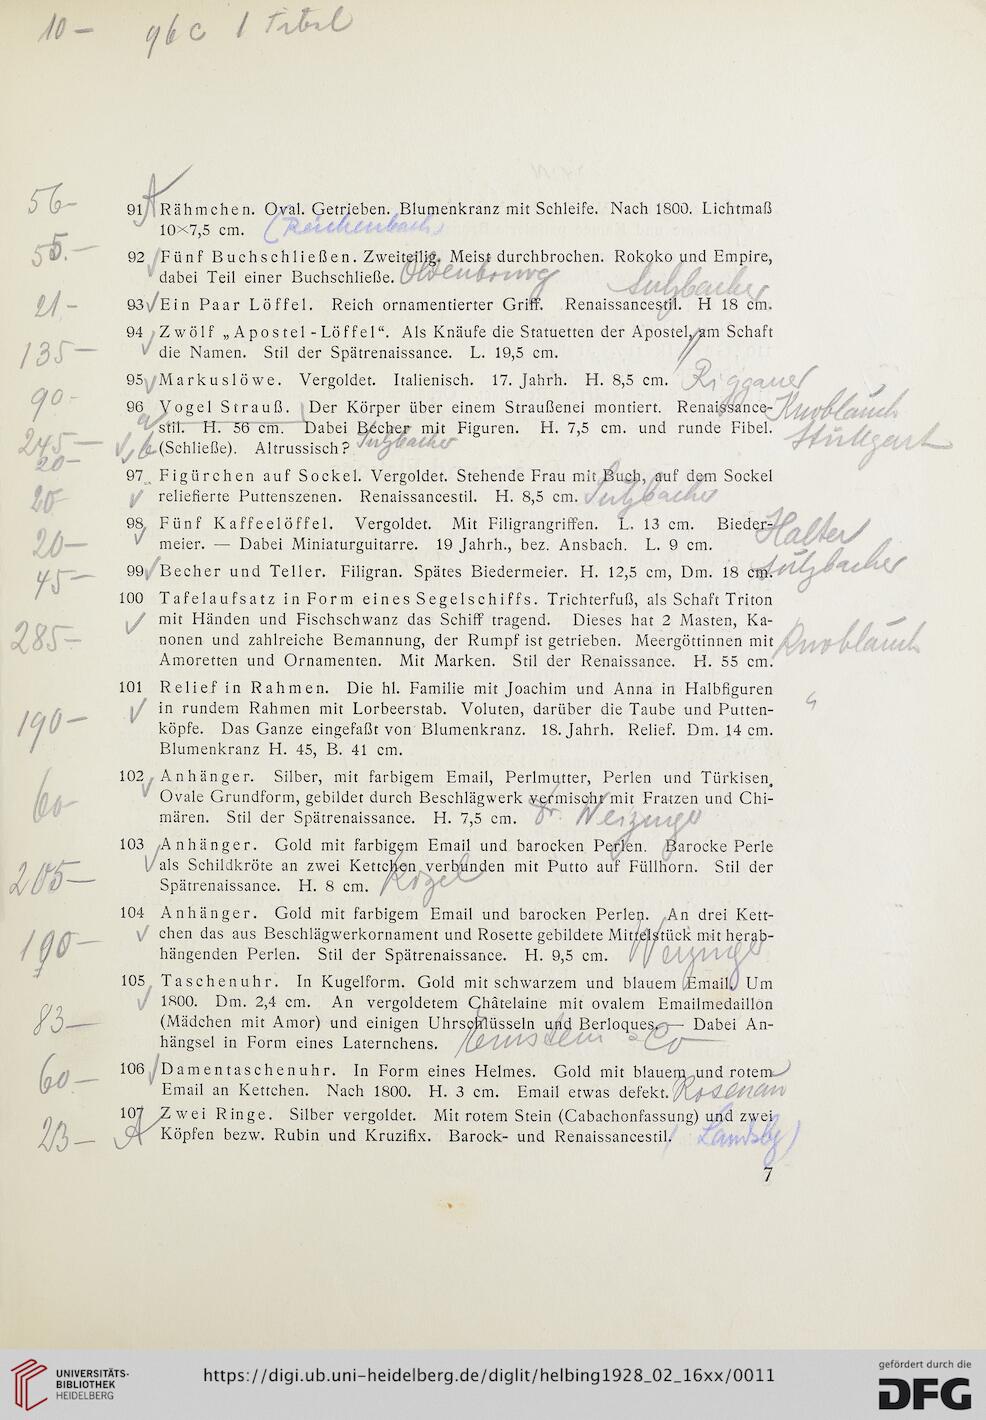 10 – 96 c 1 Fibel
56- 91 Rähmchen. Oval. Getrieben. Blumenkranz mit Schleife. Nach 1800. Lichtmaß
10×7,5 cm. (Reichenbach)
55.– 92 Fünf Buchschließen. Zweiteilig. Meist durchbrochen. Rokoko und Empire,
dabei Teil einer Buchschließe. Oldenbourg Sulzbacher
21- 93 Ein Paar Löffel. Reich ornamentierter Griff. Renaissancestil. H 18 cm.
135– 94 Zwölf „Apostel-Löffel“. Als Knäufe die Statuetten der Apostel, am Schaft
die Namen. Stil der Spätrenaissance. L. 19,5 cm. "
90- 95 Markuslöwe. Vergoldet. Italienisch. 17. Jahrh. H. 8,5 cm. Riggauer
96 Vogel Strauß. Der Körper über einem Straußenei montiert. Renaissance- Knoblauch
245– a stil. H. 56 cm. Dabei Becher mit Figuren. H. 7,5 cm. und runde Fibel. Stuttgart
20– b (Schließe). Altrussisch? Sulzbacher
97 Figürchen auf Sockel. Vergoldet. Stehende Frau mit Buch, auf dem Sockel
20- reliefierte Puttenszenen. Renaissancestil. H. 8,5 cm. Sulzbacher
98 Fünf Kaffeelöffel. Vergoldet. Mit Filigrangriffen. L. 13 cm. Bieder- Halter
20– meier. — Dabei Miniaturguitarre. 19 Jahrh., bez. Ansbach. L. 9 cm.
45– 99 Becher und Teller. Filigran. Spätes Biedermeier. H. 12,5 cm, Dm. 18 cm. Sulzbacher
100 Tafelaufsatz in Form eines Segelschiffs. Trichterfuß, als Schaft Triton
mit Händen und Fischschwanz das Schiff tragend. Dieses hat 2 Masten, Ka-
285– nonen und zahlreiche Bemannung, der Rumpf ist getrieben. Meergöttinnen mit Knoblauch
Amoretten und Ornamenten. Mit Marken. Stil der Renaissance. H. 55 cm.
101 Relief in Rahmen. Die hl. Familie mit Joachim und Anna in Halbfiguren
190– in rundem Rahmen mit Lorbeerstab. Voluten, darüber die Taube und Putten-
köpfe. Das Ganze eingefaßt von Blumenkranz. 18. Jahrh. Relief. Dm. 14 cm.
Blumenkranz H. 45, B. 41 cm.
102 Anhänger. Silber, mit farbigem Email, Perlmutter, Perlen und Türkisen,
60- Ovale Grundform, gebildet durch Beschlägwerk vermischt mit Fratzen und Chi-
mären. Stil der Spätrenaissance. H. 7,5 cm. Dr. Weizinger
103 Anhänger. Gold mit farbigem Email und barocken Perlen. Barocke Perle
205– als Schildkröte an zwei Kettchen verbunden mit Putto auf Füllhorn. Stil der
Spätrenaissance. H. 8 cm.
104 Anhänger. Gold mit farbigem Email und barocken Perlen. An drei Kett-
190– chen das aus Beschlägwerkornament und Rosette gebildete Mittelstück mit herab-
hängenden Perlen. Stil der Spätrenaissance. H. 9,5 cm. Weizinger
105 Taschenuhr. In Kugelform. Gold mit schwarzem und blauem Email. Um
1800. Dm. 2,4 cm. An vergoldetem Châtelaine mit ovalem Emailmedaillon
83– (Mädchen mit Amor) und einigen Uhrschlüsseln und Berloques. — Dabei An-
hängsel in Form eines Laternchens. & Co
60– 106 Damentaschenuhr. In Form eines Helmes. Gold mit blauem und rotem
Email an Kettchen. Nach 1800. H. 3 cm. Email etwas defekt. Rosenau
107 Zwei Ringe. Silber vergoldet. Mit rotem Stein (Cabachonfassung) und zwei
23– Köpfen bezw. Rubin und Kruzifix. Barock- und Renaissancestil.
7
UNIVERSITÄTS-
BIBLIOTHEK
HEIDELBERG
https://digi.ub.uni-heidelberg.de/diglit/helbing1928_02_16xx/0011
gefördert durch die
DFG